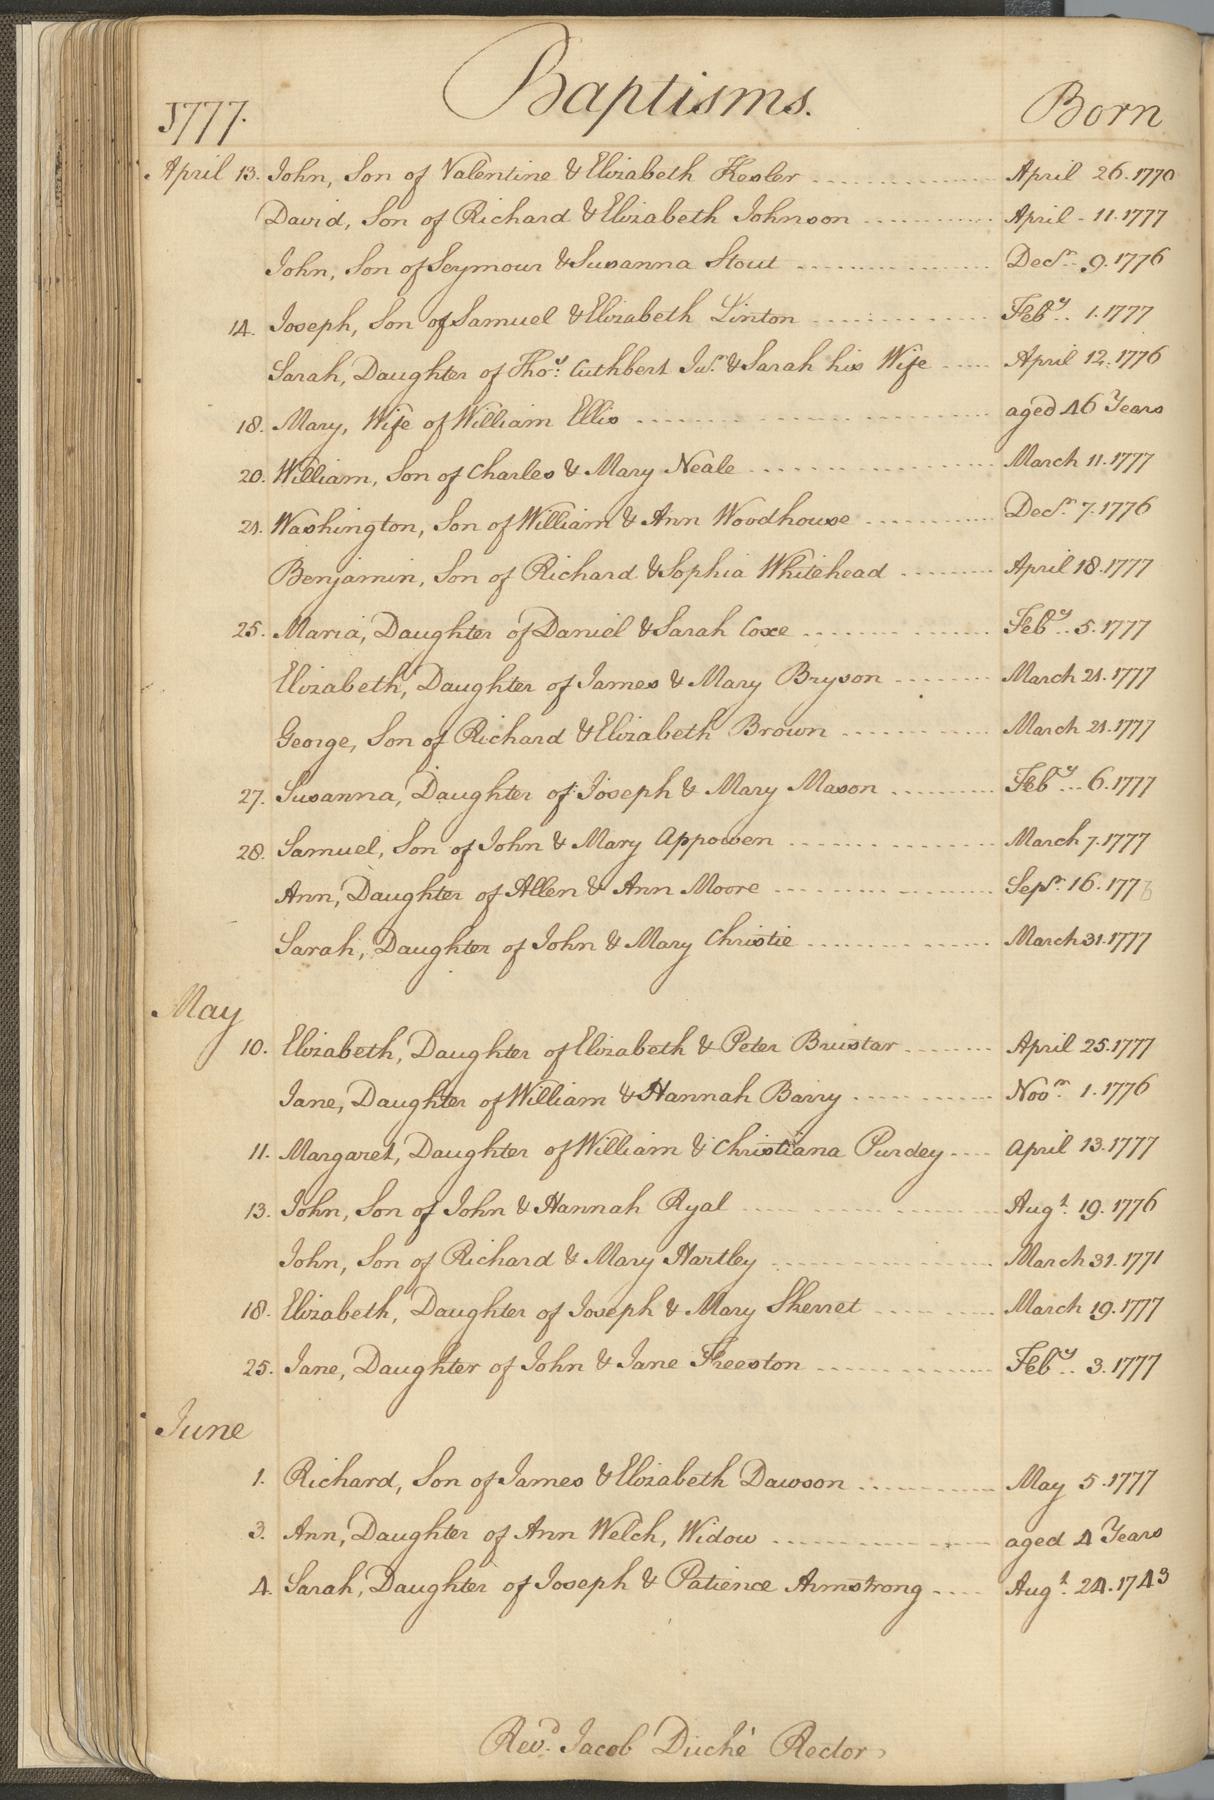 1777. Baptisms. Born
April 13. John, Son of Valentine & Elizabeth Kesler .............. April 26. 1770
David, Son of Richard & Elizabeth Johnson ........... April - 11. 1777
John, Son of Seymour & Susanna Stout ............... Decr. 9. 1776
14. Joseph, Son of Samuel & Elizabeth Linton ............ Feby. 1. 1777
Sarah, Daughter of Thos. Cuthbert Junr. & Sarah his Wife ..... April 12. 1776
18. Mary, Wife of William Ellis ................ aged 46 Years
20. William, Son of Charles & Mary Neale ............. March 11. 1777
21. Washington, Son of William & Ann Woodhouse ........... Decr. 7. 1776
Benjamin, Son of Richard & Sophia Whitehead ........ April 18. 1777
25. Maria, Daughter of Daniel & Sarah Coxe ............ Feby. 5. 1777
Elizabeth, Daughter of James & Mary Bryson ........ March 21. 1777
George, Son of Richard & Elizabeth Brown ........... March 21. 1777
27. Susanna, Daughter of Joseph & Mary Mason ......... Feby. 6. 1777
28. Samuel, Son of John & Mary Appowen ............ March 7. 1777
Ann, Daughter of Allen & Ann Moore ............. Sepr. 16. 1776
Sarah, Daughter of John & Mary Christie ........... March 31. 1777
May
10. Elizabeth, Daughter of Elizabeth & Peter Brustar ....... April 25. 1777
Jane, Daughter of William & Hannah Barry .......... Novr. 1. 1776
11. Margaret, Daughter of William & Christiana Purdey .... April 13. 1777
13. John, Son of John & Hannah Ryal ............ Augt. 19. 1776
John, Son of Richard & Mary Hartley .............. March 31. 1771
18. Elizabeth, Daughter of Joseph & Mary Sherret ........ March 19. 1777
25. Jane, Daughter of John & Jane Freeston ............ Feby. 3. 1777
June
1. Richard, Son of James & Elizabeth Dawson .......... May 5. 1777
3. Ann, Daughter of Ann Welch, Widow ............... aged 4 Years
4. Sarah, Daughter of Joseph & Patience Armstrong .... Augt. 24. 1743
Revd. Jacob Duché Rector